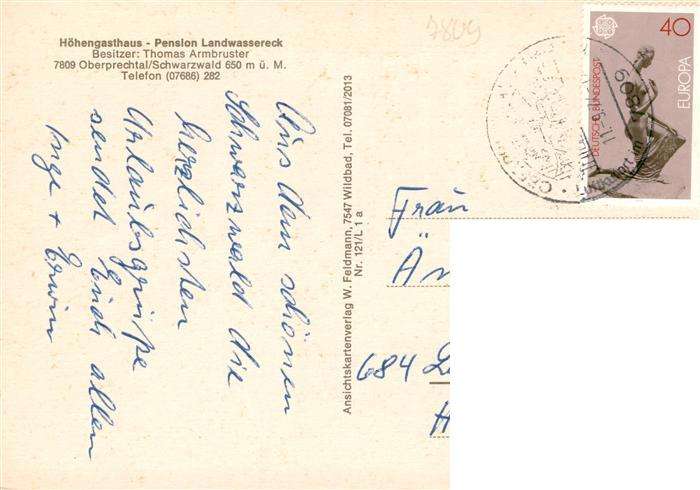 Höhengasthaus - Pension Landwassereck
Besitzer: Thomas Armbruster
7809 Oberprechtal/Schwarzwald 650 m ü. M.
Telefon (07686) 282
Aus dem schönen
Schwarzwald die
herzlichsten
Urlaubsgrüße
sendet Euch allen
Inge + Erwin
Ansichtskartenverlag W. Feldmann, 7547 Wildbad, Tel. 07081/2013
Nr. 121/L 1 a
7809
40
DEUTSCHE BUNDESPOST
EUROPA
7809
Frau
Än
684
H